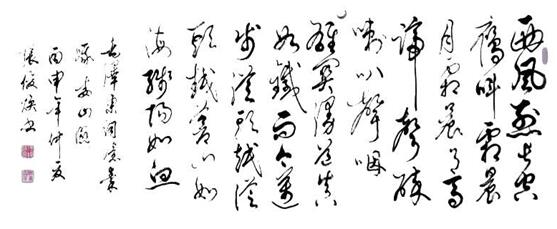 西風烈長空
雁叫霜晨
月霜晨月馬
蹄聲碎
喇叭聲咽
雄關漫道真
如鐵而今邁
步從頭越從
頭越蒼山如
海殘陽如血
毛澤東詞憶秦
娥婁山關
丙申年仲夏
張俊書